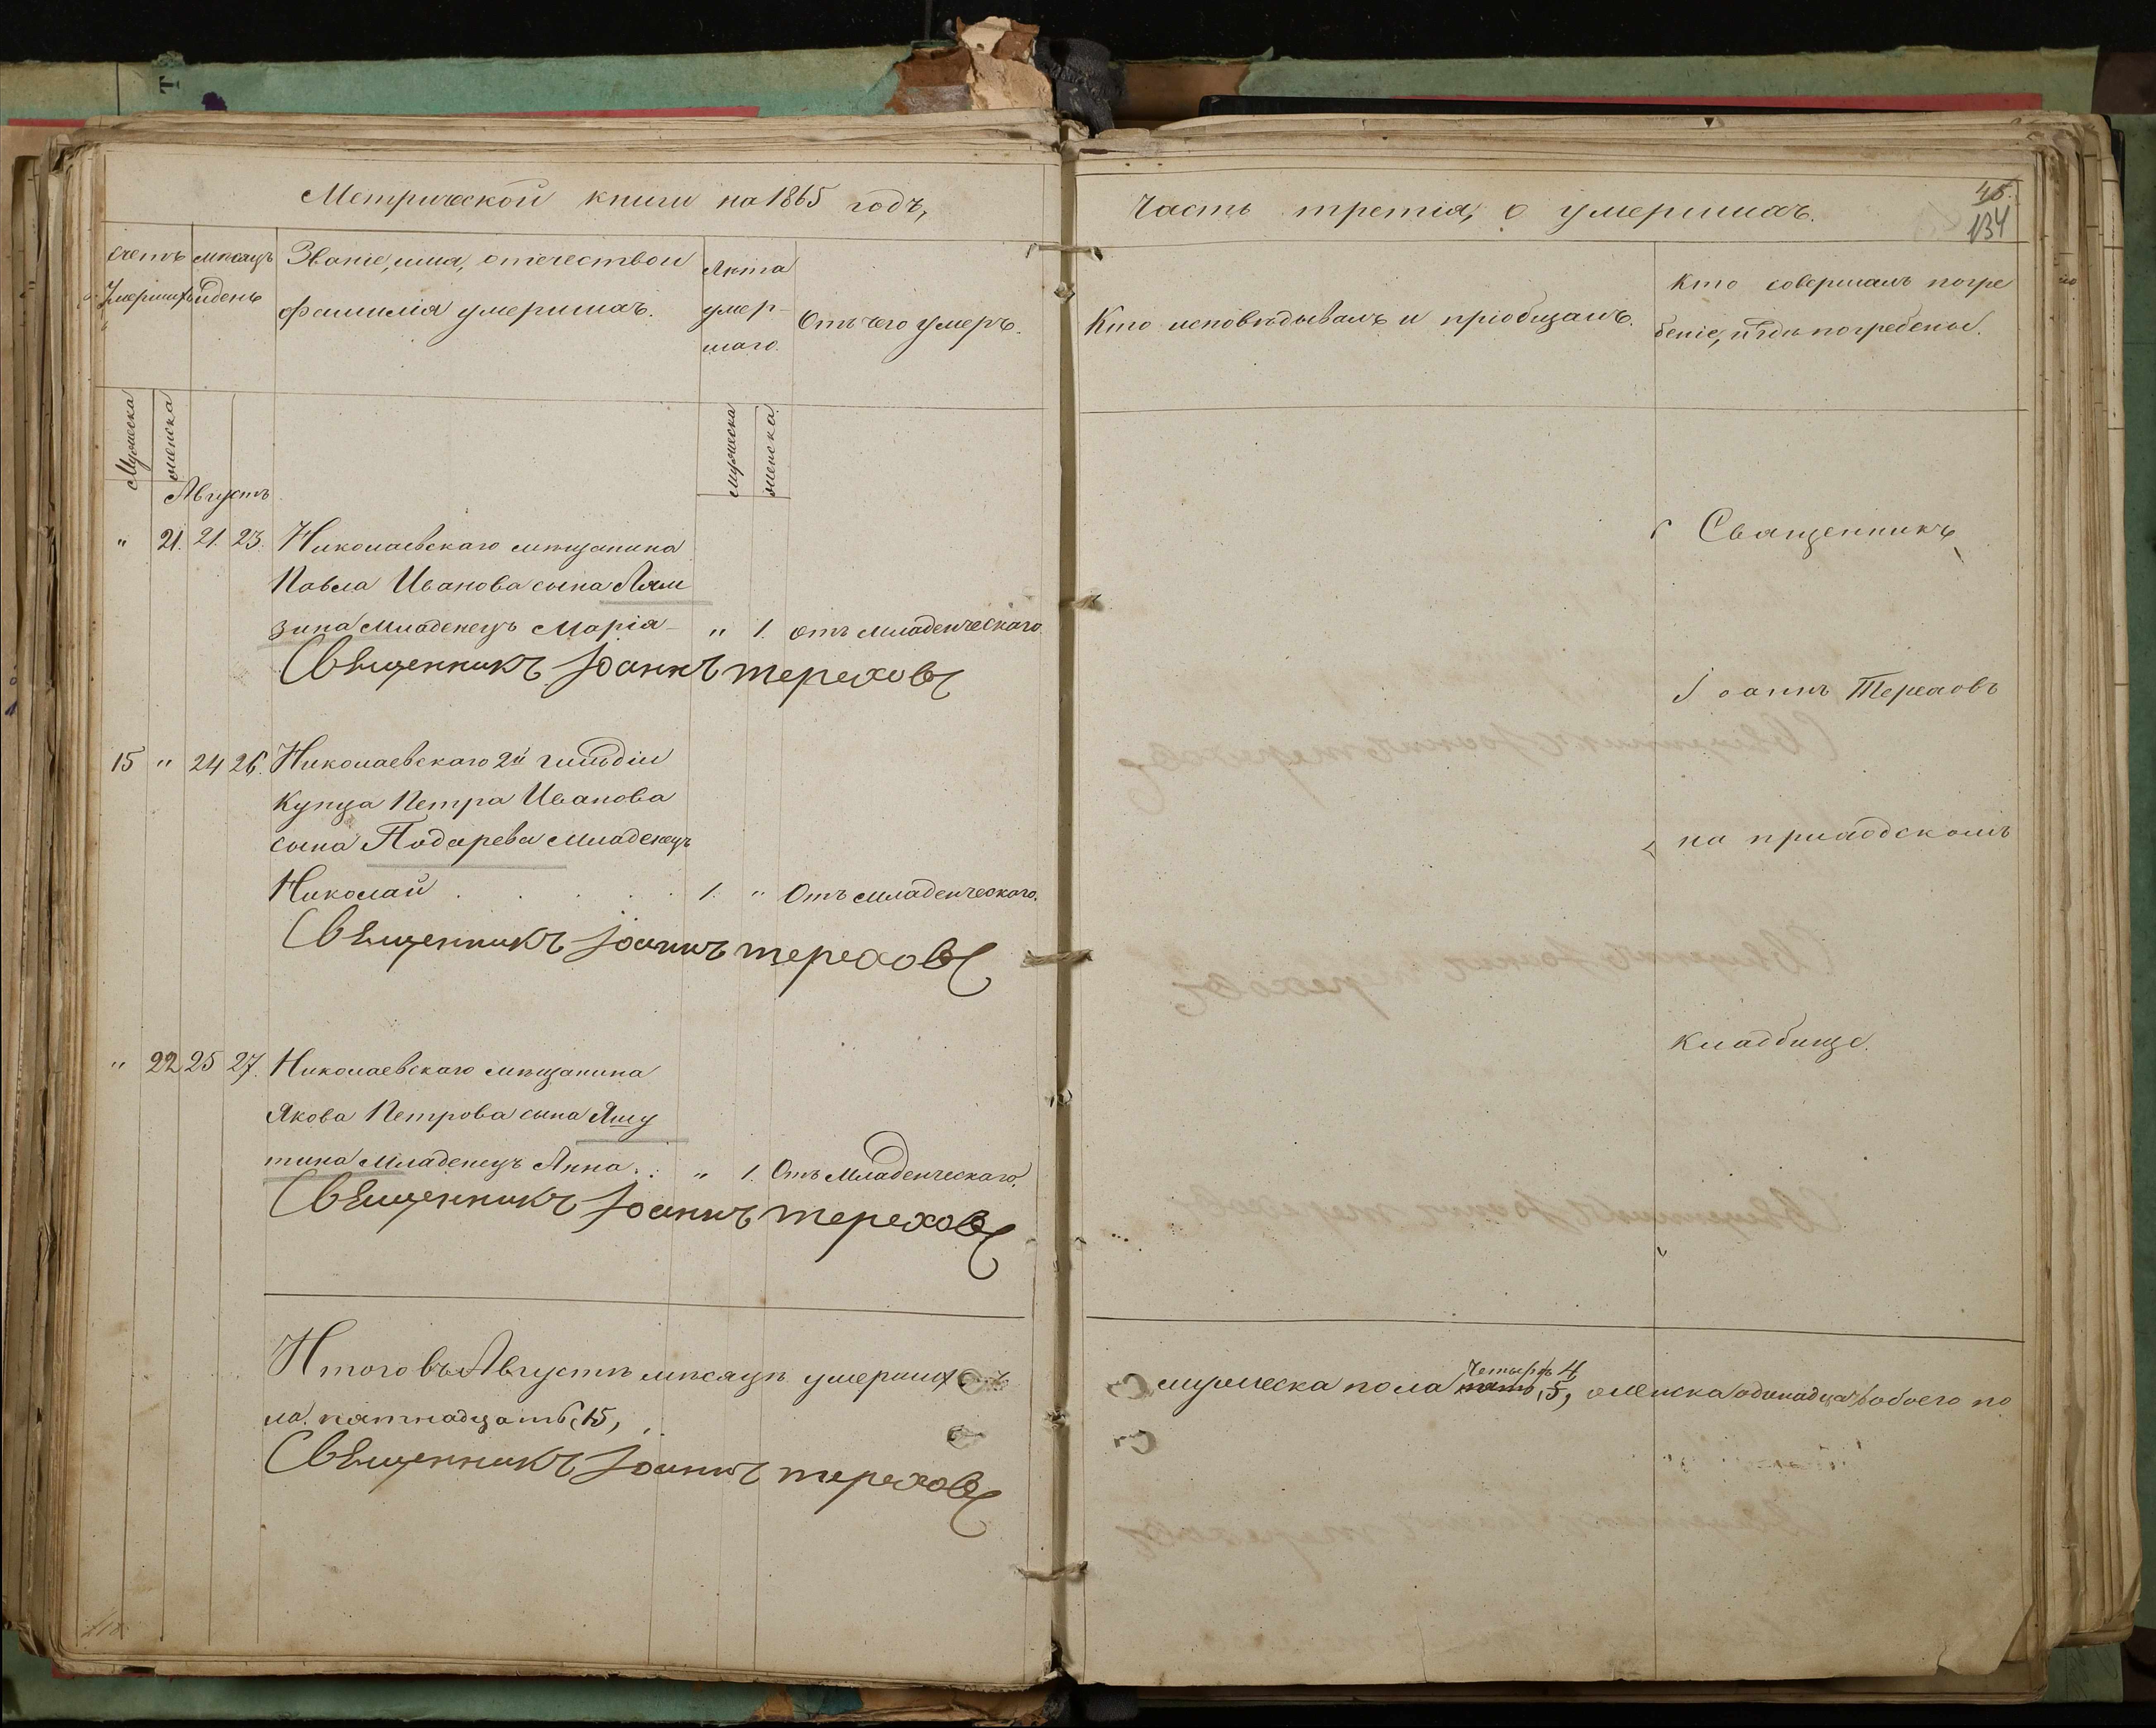 Метрической книги на 1865 годъ,
счетъ умершихъ
мѣсяцъ и день
Званіе, имя, отечество и
фамилія умершихъ.
Лѣта
умер-
шаго.
Отъ чего умеръ.
Мужеска
женска
мужеска
женска
Августъ
" 21. 21. 23. Николаевскаго мѣщанина
Павла Иванова сына Лям
зина младенецъ Марія " 1. отъ младенческаго
Священникъ Іоаннъ Тереховъ
15 " 24 26. Николаевскаго 2й гильдіи
купца Петра Иванова
сына Подарева младенецъ
Николай . . . . 1. " Отъ младенческаго.
Священникъ Іоаннъ Тереховъ
" 22 25 27. Николаевскаго мѣщанина
Якова Петрова сына Яшу
тина младенецъ Анна. " 1. Отъ младенческаго.
Священникъ Іоаннъ Тереховъ
Итого въ Августѣ мѣсяцѣ умершихъ
ла пятнадцать (15),
Священникъ Іоаннъ Тереховъ
Часть третія, о умершихъ.
45.
134
Кто исповѣдывалъ и пріобщалъ.
Кто совершалъ погре
беніе, и гдѣ погребены.
Священникъ
Іоаннъ Тереховъ
на приходскомъ
кладбище.
четыре 4
мужеска пола пять 5, женска одинадцать обоего по